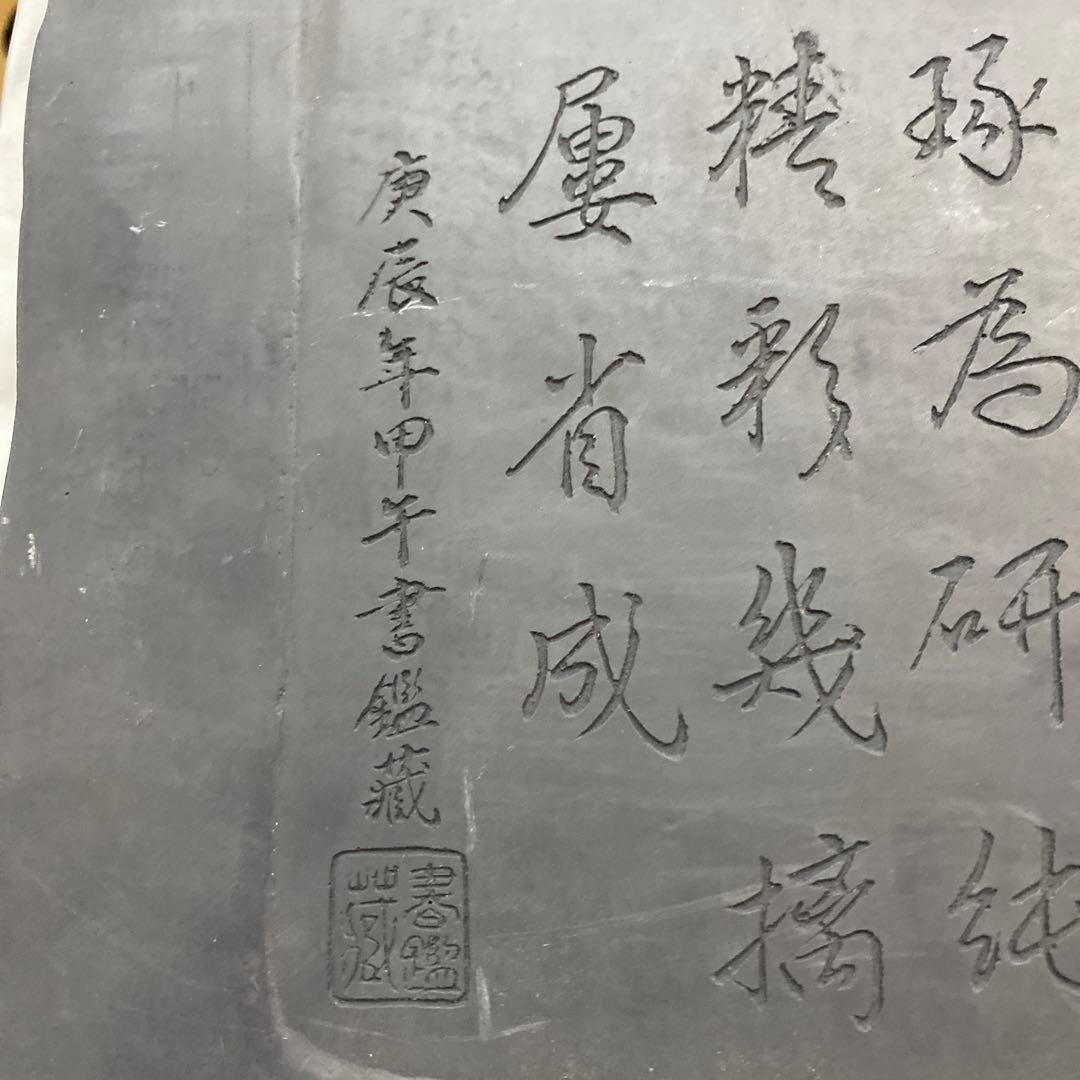 琢為研純
精彩幾摛
屢省成
庚辰年甲午書鑑藏
書鑑
藏